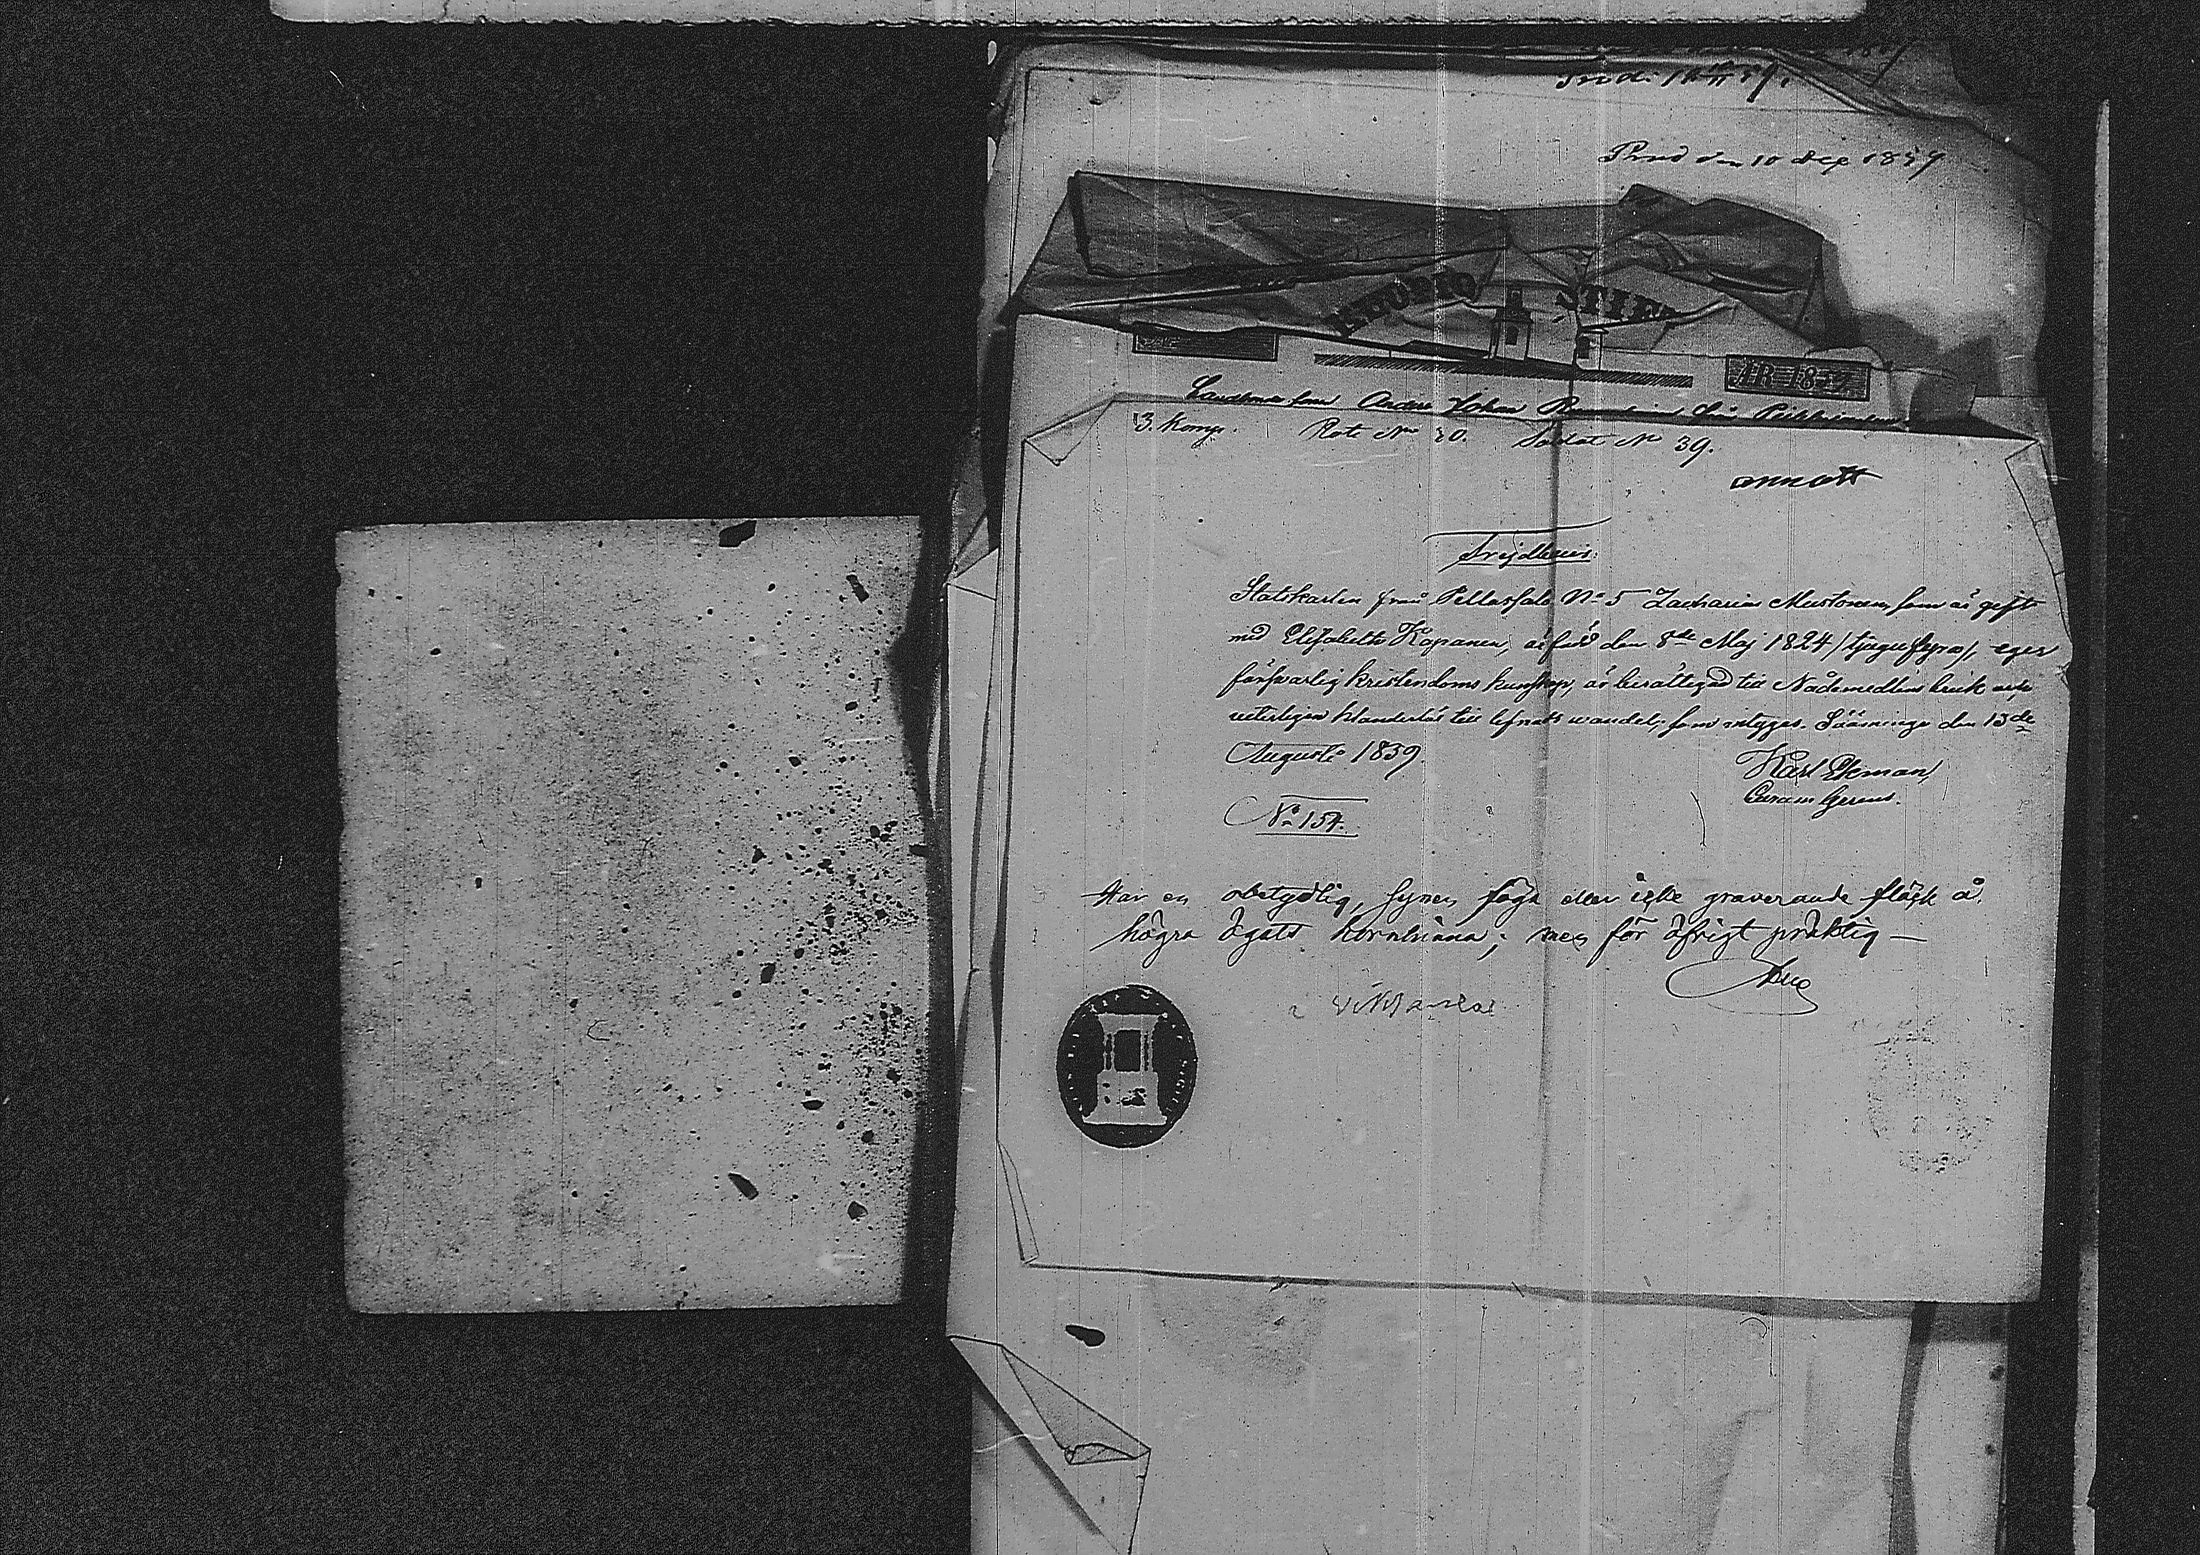 Prod den 10 Sep 1859
KUOPIO STIFT
ÅR 1857
Landbonde sonen Anders Johan från
3. Komp. Rote No 20. Soldat No 39.
annått
Frejdbevis.
Statskarlen från Pellossalo No 5 Zacharias Mustonen, som är gift
med Elisabeth Kapanen, är född den 8de Maj 1824 /tjugufyra/, eger
försvarlig kristendoms kunskap, är berättigad till Nådemedlens bruk och
veterligen klanderlös till lefnads wandel; som intygas. Sääminge den 13de
Augusti 1859.
Karl
No 154.
Har en obetydlig, synen föga eller icke graverande fläck å
högra ögats hornhinna; men för öfrigt präktig —